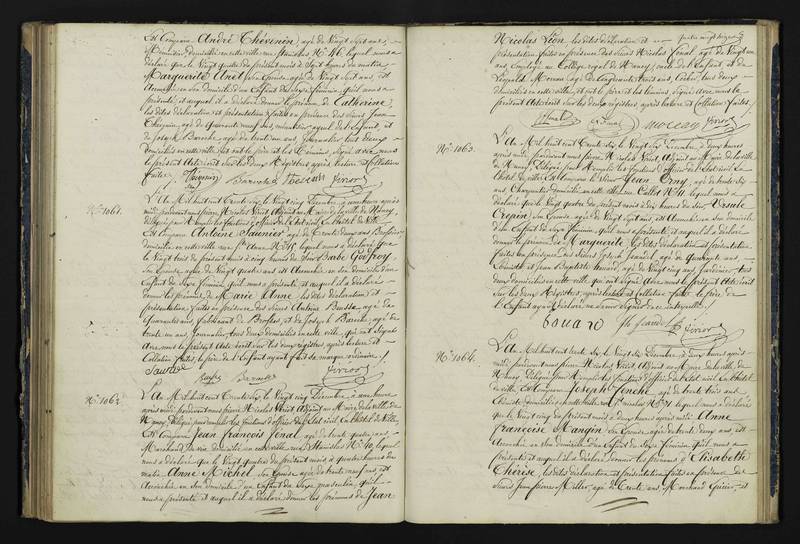 Est Comparu André Thévenin, âgé de Vingt Sept ans,
domicilié en cette ville rue Stanislas N° 46, lequel nous a
déclaré que le Vingt quatre du présent mois à Sept heures du matin
Marguerite Anet Son Epouse, âgée de Vingt Sept ans, est
Accouchée en Son domicile d'un Enfant du Sexe féminin, qu'il nous a
présenté et auquel il a déclaré donner le prénom de Catherine,
les dites déclaration et présentation faites en présence des Sieurs Jean
âgé de quarante neuf ans, menuisier, ayeul de l'enfant, et
de Joseph Baroche, âgé de trente un ans, Journalier, tous deux
domiciliés en cette ville, et ont le père et les témoins, Signé avec nous
le présent Acte écrit Sur les deux Registres après lecture et Collation
faites.
N° 1061.
L'An Mil huit cent Trente Six, le Vingt Six Décembre, à une heure après
midi, pardevant nous pierre Nicolas Viriot Adjoint au Maire de la ville de Nancy,
délégué pour Remplir les fonctions d'officier de l'Etat civil, En l'hôtel de Ville,
Est Comparu Antoine Saunier, âgé de Trente deux ans, Brossier,
domicilié en cette ville rue St Anne N° 15, lequel nous a déclaré que
le Vingt trois du présent mois à cinq heures du Soir Barbe Godfroy,
Son Epouse, âgée de Vingt quatre ans est Accouchée en Son domicile d'un
Enfant du Sexe féminin, qu'il nous a présenté et auquel il a déclaré
donner les prénoms de Marie Anne, les dites déclaration et
présentation, faites en présence des Sieurs Antoine Bussa, âgé de
Quarante ans, fabricant de Broches, et de Joseph Baroche, âgé de
trente un ans, Journalier, tous deux domiciliés en cette ville, qui ont Signé
Avec nous le présent Acte écrit Sur les deux registres, après lecture et
Collation faites, le père de l'Enfant ayant fait Sa marque ordinaire.
N° 1062.
L'An Mil huit cent Trente Six, le Vingt Six Décembre, à une heure
après midi, pardevant nous pierre Nicolas Viriot, Adjoint au Maire de la ville de
Nancy, Délégué pour Remplir les fonctions d'officier de l'Etat civil, En l'hôtel de Ville,
Est Comparu Jean François Jenal, âgé de trente quatre ans,
Marchand, domicilié en cette ville rue St Stanislas N° 40, lequel
nous a déclaré que le Vingt quatre du présent mois à quatre heures du
matin Anne Michel, Son Epouse, âgée de trente neuf ans, est
Accouchée en Son domicile d'un Enfant du Sexe masculin, qu'il
nous a présenté et auquel il a déclaré donner les prénoms de Jean
Nicolas Léon, les dites déclaration et
présentation faites en présence des Sieurs Nicolas Jenal, âgé de Vingt un
ans, Employé au Collège royal de Nancy, oncle de l'enfant, et de
Léopold Moreau, âgé de Cinquante trois ans, Cocher, tous deux
domiciliés en cette ville, et ont le père et les témoins, Signé Avec nous le
présent Acte écrit Sur les deux registres après lecture et Collation faites.
N° 1063.
L'An Mil huit cent Trente Six, le Vingt Six Décembre, à deux heures
après midi, pardevant nous pierre Nicolas Viriot, Adjoint au Maire de la ville
de Nancy, Délégué pour Remplir les fonctions d'officier de l'Etat civil, En
l'hôtel de ville, Est Comparu Jean Orny, âgé de trente Six
ans, Charpentier, domicilié en cette ville rue Callot N° 4, lequel nous a
déclaré que le Vingt quatre du présent mois à dix heures du Soir Ursule
Crépin, Son Epouse, âgée de Vingt Sept ans, est Accouchée en Son domicile
d'un Enfant du Sexe féminin, qu'il nous a présenté et auquel il a déclaré
donner le prénom de Marguerite, les dites déclaration et présentation
faites en présence des Sieurs Joseph Jeandel, âgé de quarante ans,
et Jean Baptiste Houard, âgé de Vingt cinq ans, Jardinier, tous
deux domiciliés en cette ville, qui ont Signé Avec nous le présent Acte écrit
Sur les deux Registres, après lecture et Collation faites, le père de
l'Enfant ayant déclaré ne Savoir Signer de ce interpellé.
N° 1064.
L'An Mil huit cent trente Six, le Vingt Six Décembre, à deux heures après
midi, pardevant nous pierre Nicolas Viriot, Adjoint au Maire de la ville de
Nancy, Délégué pour Remplir les fonctions d'officier de l'Etat civil, En l'hôtel
de ville, Est Comparu Joseph Jonché, âgé de trente trois ans,
domicilié en cette ville rue St Nicolas N° lequel nous a déclaré
que le Vingt cinq du présent mois à deux heures après midi Anne
Françoise Mangin, Son Epouse, âgée de trente deux ans, est
Accouchée en Son domicile d'un Enfant du Sexe féminin qu'il nous a
présenté et auquel il a déclaré donner les prénoms d'Elisabeth
Thérèse, les dites déclaration et présentation faites en présence des
Sieurs Jean Pierre Miller, âgé de Trente ans, Marchand Epicier, et